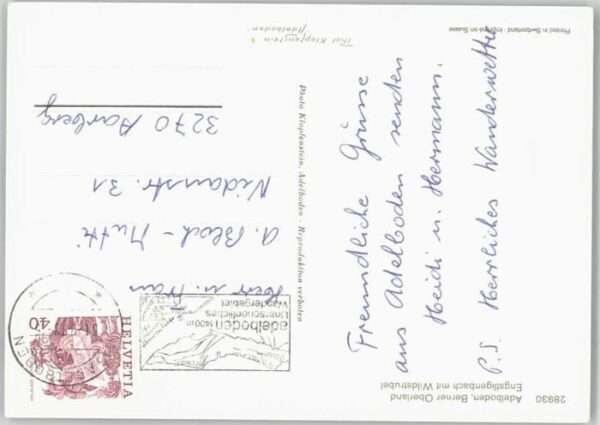 28930    Adelboden, Berner Oberland
Engstligenbach mit Wildstrubel
Freundliche Grüsse
aus Adelboden senden
Heidi u. Hermann.
P.S. Herrliches Wanderwetter
Photo Klopfenstein, Adelboden - Reproduktion verboten
HELVETIA
40
ADELBODEN
adelboden 1400 m
Wandergebiet
Herr u. Frau
A. Bloch-Mutti
Nidaustr. 31
3270 Aarberg
Phot Klopfenstein
Adelboden
Printed in Switzerland - Imprimé en Suisse